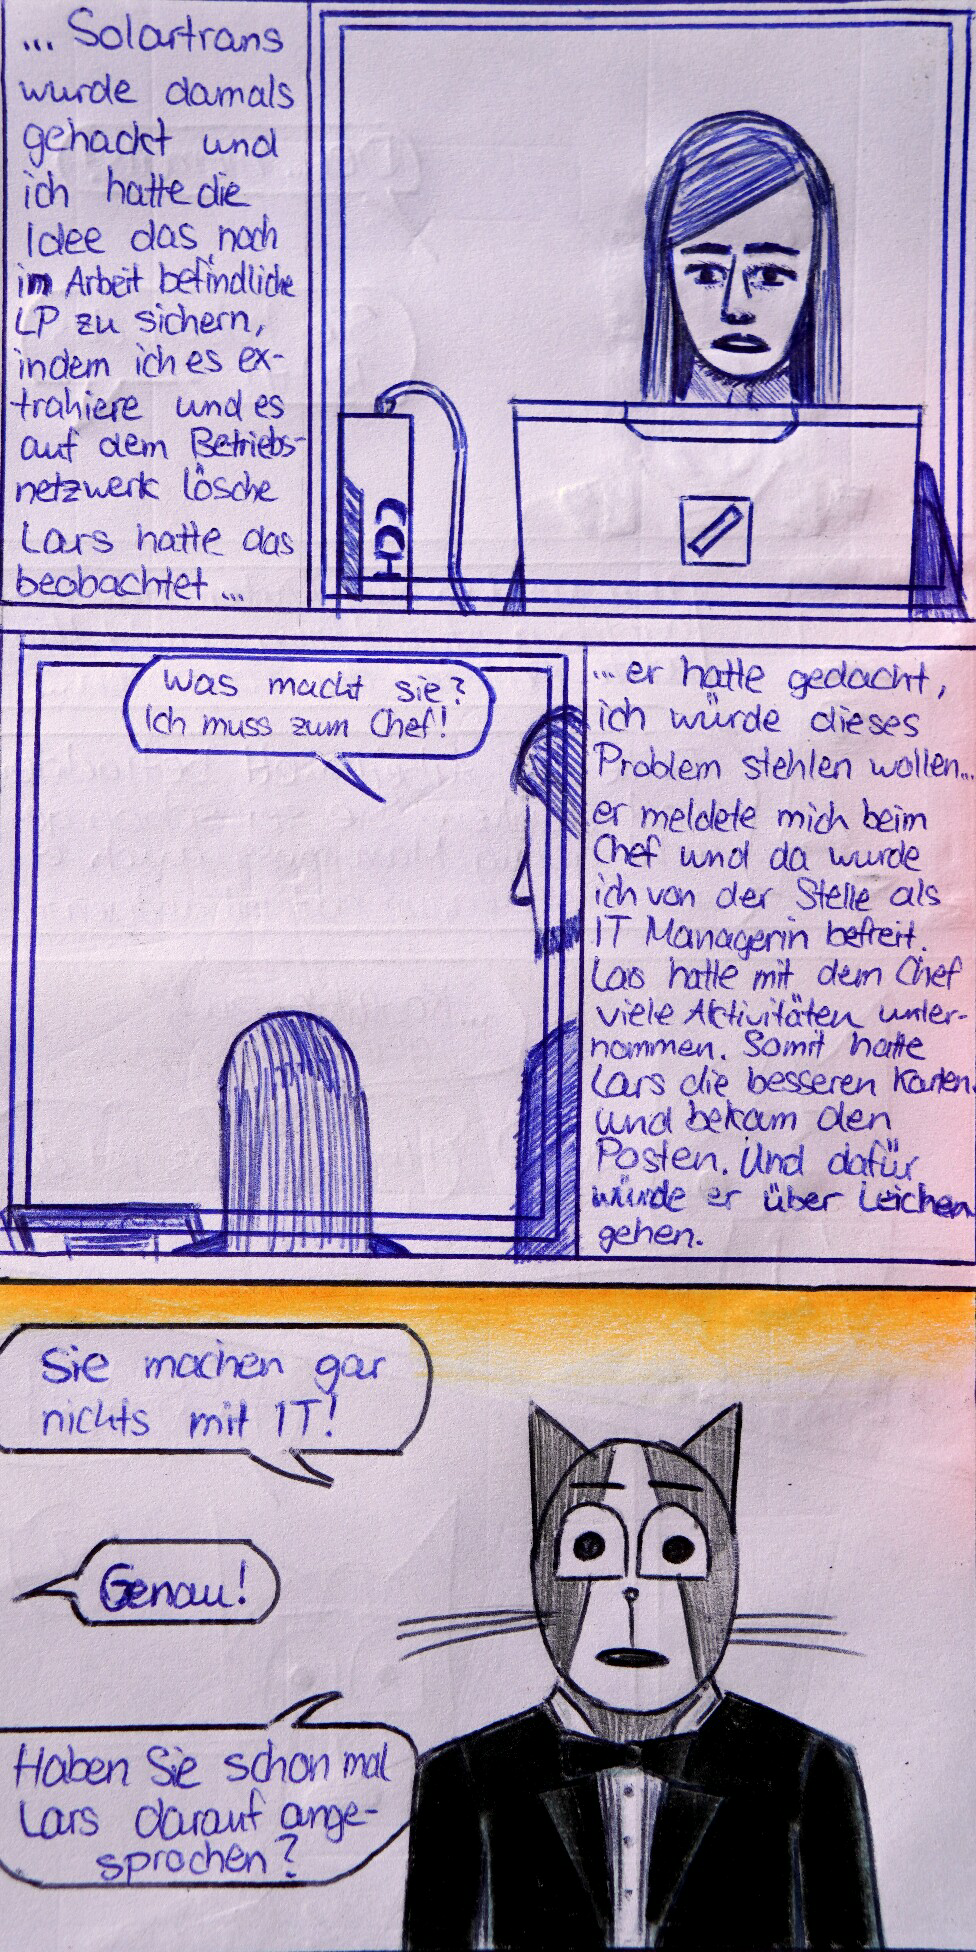 ... Solartrans
wurde damals
gehackt und
ich hatte die
Idee das noch
im Arbeit befindliche
LP zu sichern,
indem ich es ex-
trahiere und es
auf dem Betriebs-
netzwerk lösche
Lars hatte das
beobachtet ...
Was macht sie?
Ich muss zum Chef!
... er hatte gedacht,
ich würde dieses
Problem stehlen wollen...
er meldete mich beim
Chef und da wurde
ich von der Stelle als
IT Managerin befreit.
Lars hatte mit dem Chef
viele Aktivitäten unter-
nommen. Somit hatte
Lars die besseren Karten.
und bekam den
Posten. Und dafür
würde er über Leichen
gehen.
Sie machen gar
nichts mit IT!
Genau!
Haben Sie schon mal
Lars darauf ange-
sprochen?